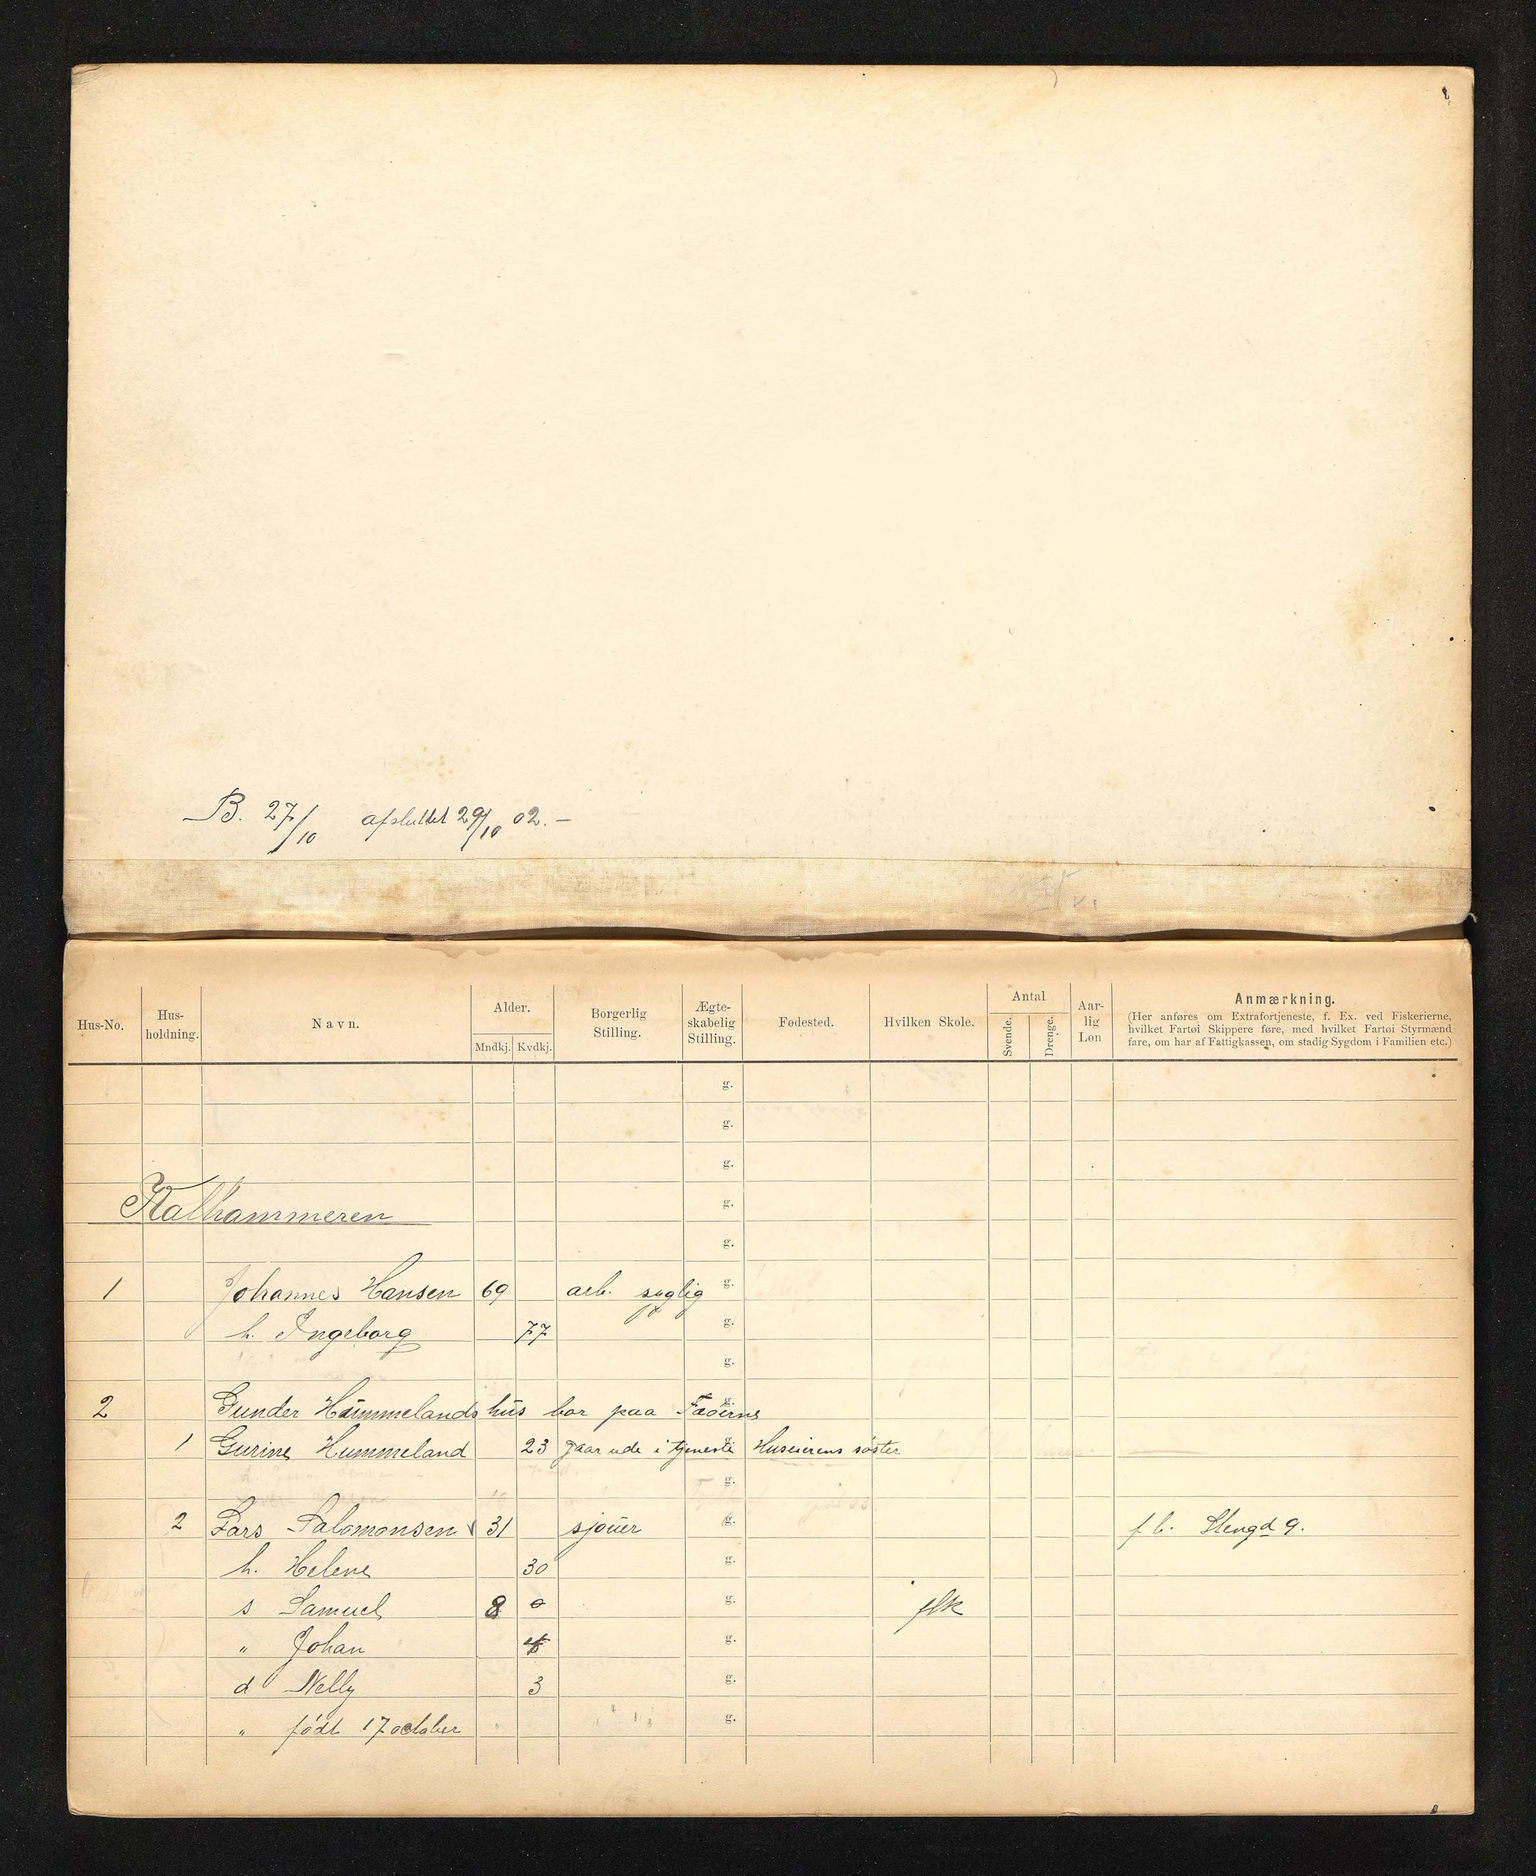 B. 27/10 afsluttet 29/10 02. –
Hus-No. Hus-holdning. Navn. Alder. Mndkj. Kvdkj. Borgerlig Stilling. Ægte-skabelig Stilling. Fødested. Hvilken Skole. Antal Svende. Drenge. Aar-lig Løn Anmærkning.
(Her anføres om Extrafortjeneste, f. Ex. ved Fiskerierne,
hvilket Fartøi Skippere føre, med hvilket Fartøi Styrmænd
fare, om har af Fattigkassen, om stadig Sygdom i Familien etc.)
g.
g.
g.
Kalhammeren g.
g.
1 Johannes Hansen 69 arb. syglig g.
h. Ingeborg 77 g.
g.
2 Gunder Hummelands hus bor paa Faöerne g.
1 Gurine Hummeland 23 gaar ude i tjeneste g. Huseierens søster
g.
2 Lars Salomonsen 31 sjouer g. f b. Stengd 9.
h. Helene 30 g.
s Samuel 8 g. flk
" Johan g.
d Nelly 3 g.
" født 17 october g.